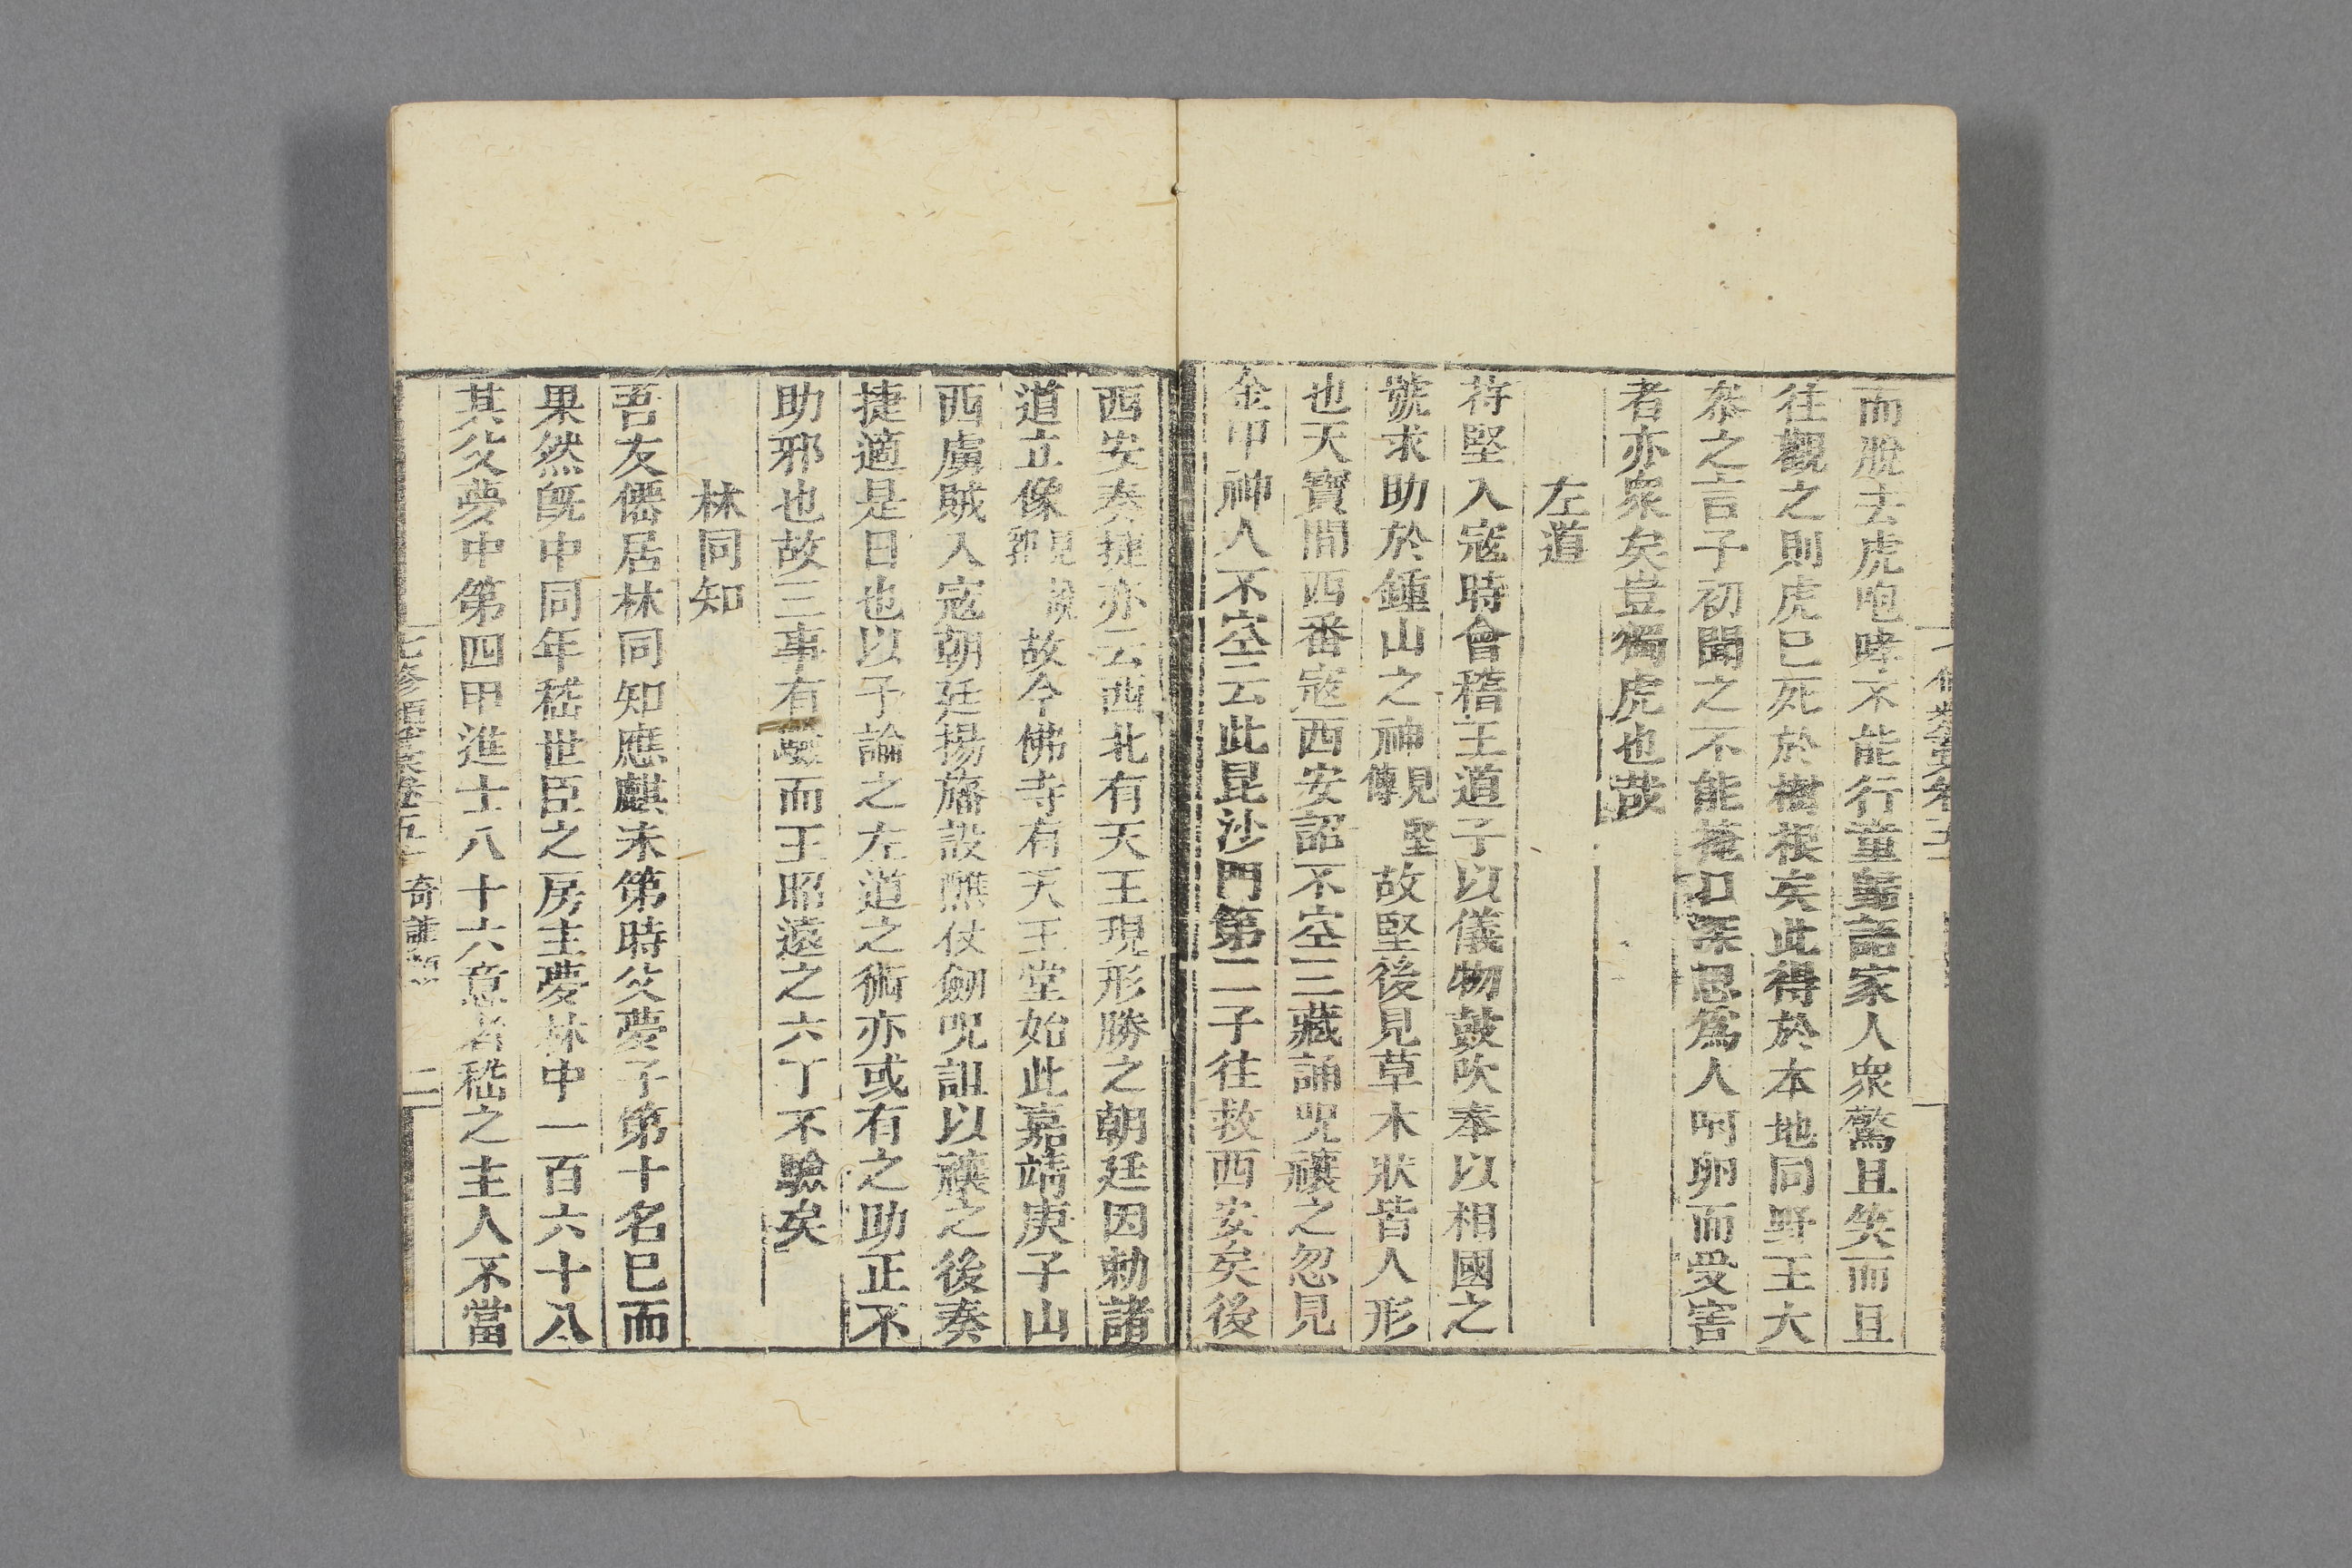 而脫去虎咆哮不能行童歸語家人衆驚且笑而且
往觀之則虎已死於樹根矣此得於本地同野王大
叅之言予初聞之不能掩口深思爲人呵卵而受害
者亦衆矣豈獨虎也哉
左道
苻堅入寇時會稽王道子以儀物鼓吹奉以相國之
號求助於鍾山之神見堅傳故堅後見草木狀皆人形
也天寶間西番寇西安詔不空三藏誦呪禳之忽見
金甲神人不空云此昆沙門第二子往救西安矣後
西安奏捷亦云西北有天王現形勝之朝廷因勅諸
道立像見說郛故今佛寺有天王堂始此嘉靖庚子山
西虜賊入寇朝廷揚旛設醮仗劒呪詛以禳之後奏
捷適是日也以予論之左道之術亦或有之助正不
助邪也故三事有驗而王昭遠之六丁不驗矣
林同知
吾友儒居林同知應麒未第時父夢子第十名巳而
果然旣中同年嵇世臣之房主夢林中一百六十八
其父夢中第四甲進士八十六意者嵇之主人不當
七修類藁卷五 奇謔類 二